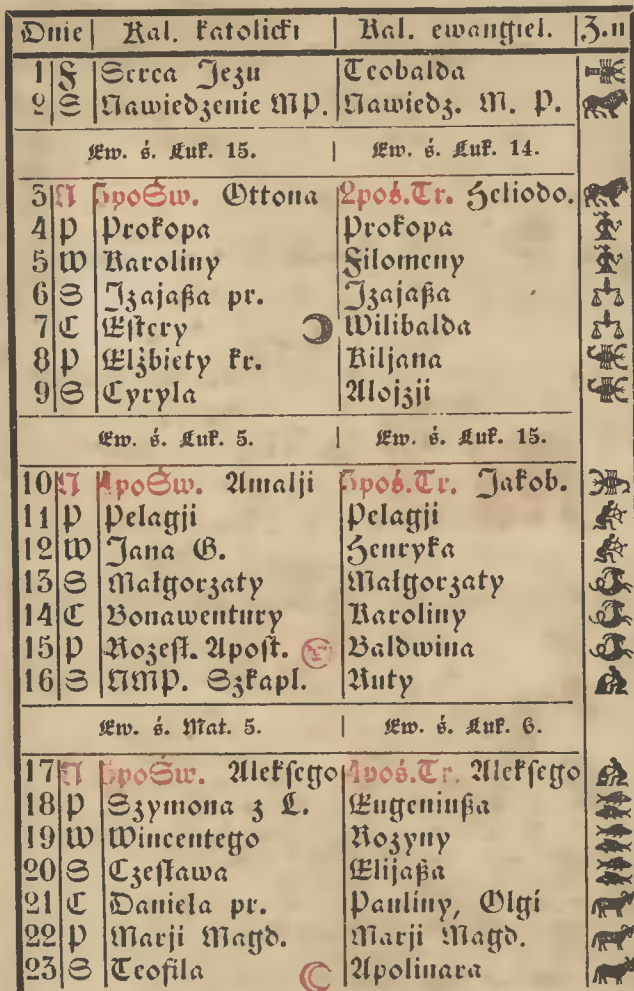 Dnie | Kal. katolicki | Kal. ewangiel. | Z.n
1 F Serca Jezu | Teobalda
2 S Nawiedzenie MP. | Nawiedz. M. P.
Ew. ś. Łuk. 15. | Ew. ś. Łuk. 14.
3 N 3poŚw. Ottona | 2poś.Tr. Heliodo.
4 P Prokopa | Prokopa
5 W Karoliny | Filomeny
6 S Izajaßa pr. | Izajaßa
7 C Estery | Wilibalda
8 P Elżbiety kr. | Kiljana
9 S Cyryla | Alojzji
Ew. ś. Łuk. 5. | Ew. ś. Łuk. 15.
10 N 4poŚw. Amalji | 3poś.Tr. Jakob.
11 P Pelagji | Pelagji
12 W Jana G. | Henryka
13 S Małgorzaty | Małgorzaty
14 C Bonawentury | Karoliny
15 P Rozesł. Apost. | Baldwina
16 S NMP. Szkapl. | Ruty
Ew. ś. Mat. 5. | Ew. ś. Łuk. 6.
17 N 5poŚw. Aleksego | 4poś.Tr. Aleksego
18 P Szymona z L. | Eugeniußa
19 W Wincentego | Rozyny
20 S Czesława | Elijaßa
21 C Daniela pr. | Pauliny, Olgi
22 P Marji Magd. | Marji Magd.
23 S Teofila | Apolinara